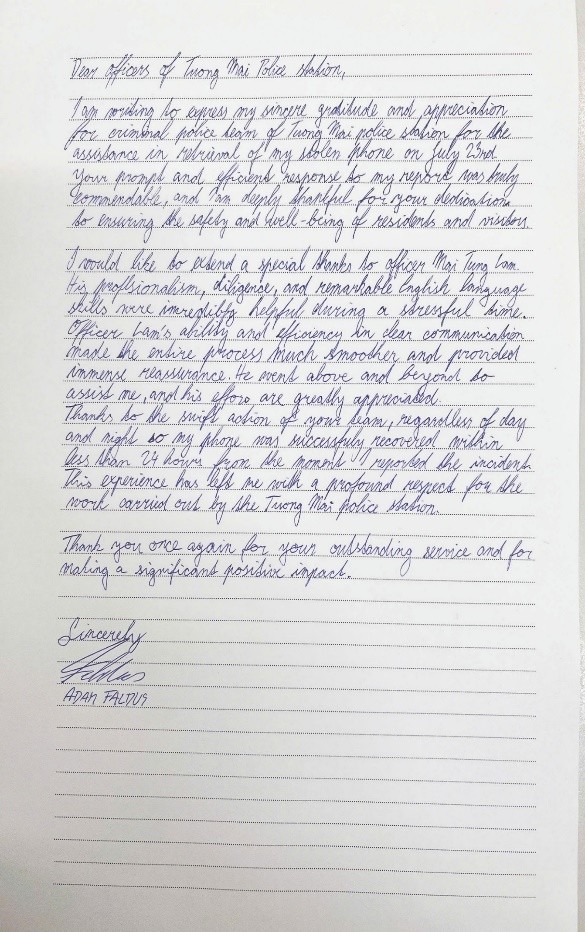 Dear officers of Tuong Mai Police station,
I am writing to express my sincere gratitude and appreciation
for criminal police team of Tuong Mai police station for the
assistance in retrieval of my stolen phone on July 23rd
Your prompt and efficient response to my report was truly
commendable, and I am deeply thankful for your dedication
to ensuring the safety and well-being of residents and visitors.
I would like to extend a special thanks to officer Mai Tung Lam.
His proffsionalism, diligence, and remarkable English language
skills were incredibly helpful during a stressful time.
Officer Lam's ability and efficiency in clear communication
made the entire process much smoother and provided
immense reassurance. He went above and beyond to
assist me, and his effors are greatly appreciated.
Thanks to the swift action of your team, regardless of day
and night so my phone was successfully recovered within
less than 24 hours from the moment I reported the incident.
This experience has left me with a profound respect for the
work carried out by the Tuong Mai police station.
Thank you once again for your outstanding service and for
making a significant positive impact.
Sincerely
ADAM FALDUS